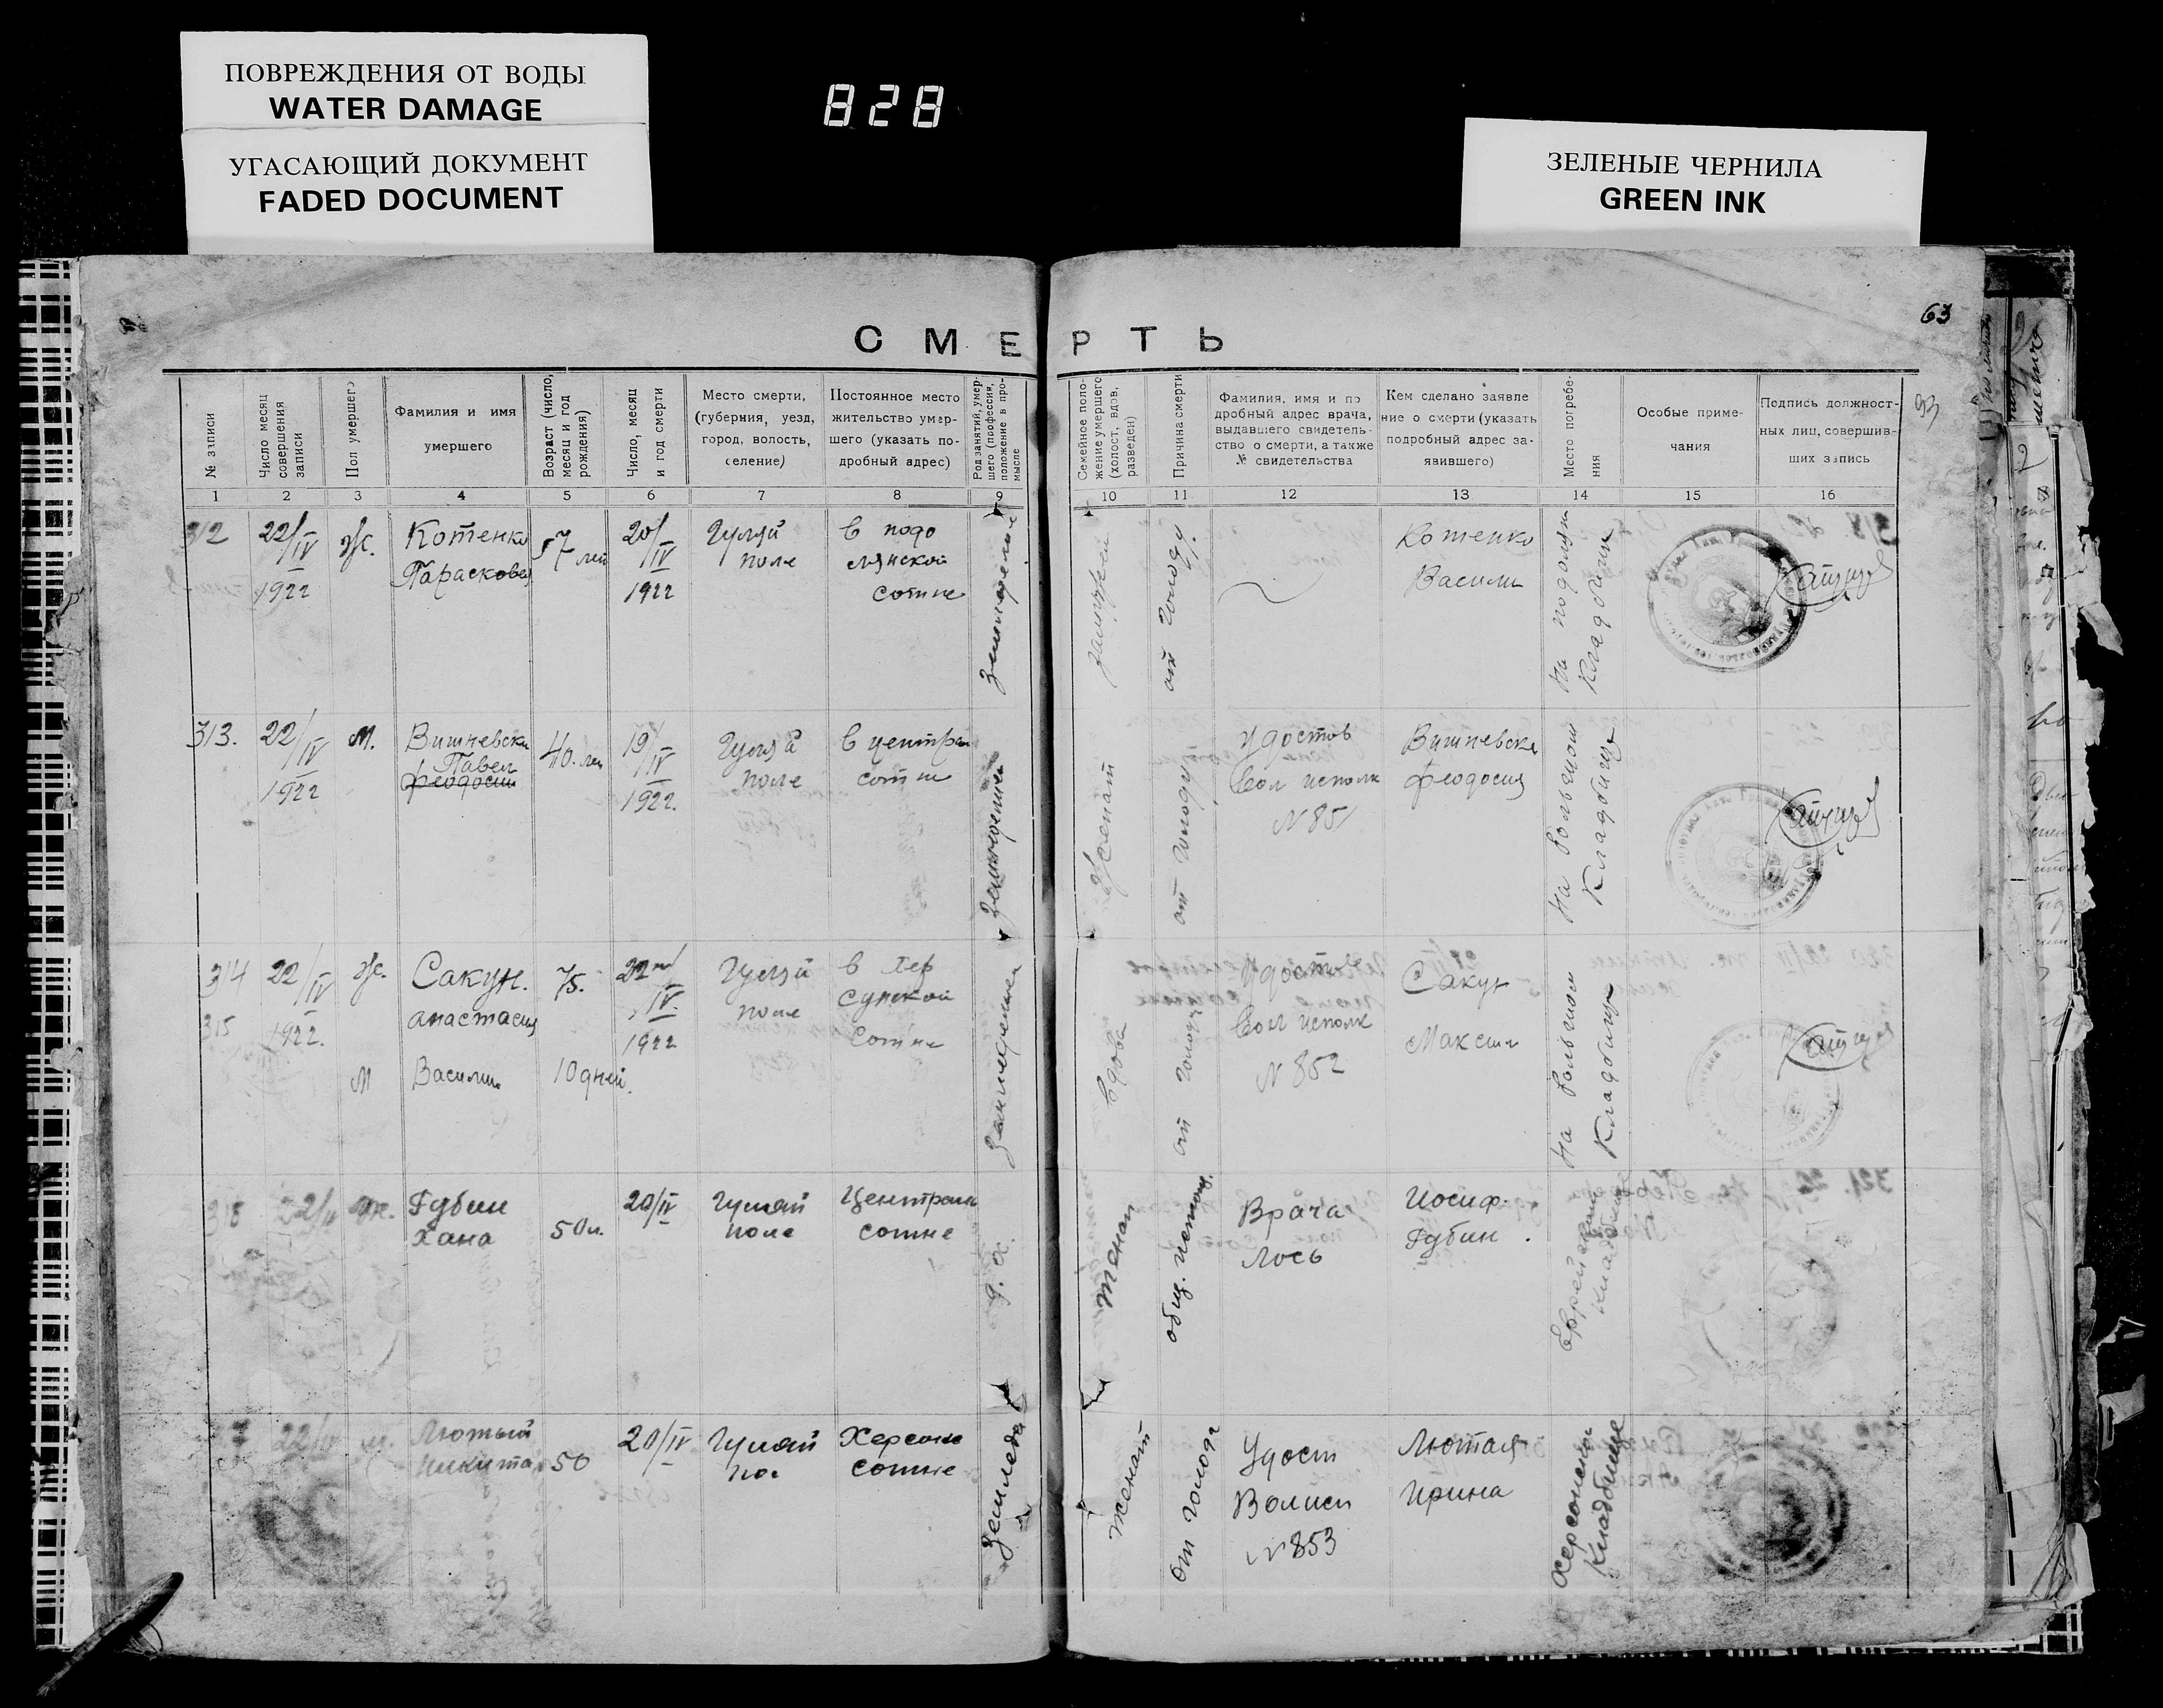 ПОВРЕЖДЕНИЯ ОТ ВОДЫ
WATER DAMAGE
УГАСАЮЩИЙ ДОКУМЕНТ
FADED DOCUMENT
828
ЗЕЛЕНЫЕ ЧЕРНИЛА
GREEN INK
63
93
СМЕРТЬ
№ записи
Число месяц
совершения
записи
Пол умершего
Фамилия и имя
умершего
Возраст (число,
месяц и год
рождения)
Число, месяц
и год смерти
Место смерти,
(губерния, уезд,
город, волость,
селение)
Постоянное место
жительство умер-
шего (указать по-
дробный адрес)
Род занятий, умер-
шего (профессия,
положение в про-
мысле
Семейное поло-
жение умершего
(холост, вдов,
разведен)
Причина смерти
Фамилия, имя и по
дробный адрес врача,
выдавшего свидетель-
ство о смерти, а также
№ свидетельства
Кем сделано заявле
ние о смерти (указать
подробный адрес за-
явившего)
Место погребе-
ния
Особые приме-
чания
Подпись должност-
ных лиц, совершив-
ших запись
1 2 3 4 5 6 7 8 9 10 11 12 13 14 15 16
312
22/IV
1922
ж.
Котенко
Парасковея
57 лет
20/IV
1922
Гуляй
поле
в подо
лянской
сотне
замужней
от голоду.
Котенко
Васили
На подолян
Кладбищи
313.
22/IV
1922
м.
Вишневски
Павел
Феодосии
40. лет
19/IV
1922.
Гуляй
поле
в централ
сотне
Женат
от голоду
Удостов
Вол исполк
N 851
Вишневска
Феодосия
На Большом
Кладбище
314
315
22/IV
1922.
ж.
Сакун.
Анастасия
75.
м
Васили
10 дней.
22/IV.
1922
Гуляй
поле
в Хер
сунской
Сотне
Вдова
от голоду
Удостов
Вол исполк
N 852
Сакун
Максим
На Большом
Кладбище
22/IV
Губин
Хана
50 л.
20/IV
Гуляй
поле
Централь
сотне
д. х.
общ. истощ.
Врача
Лось
Иосиф
Губин.
Еврейский
кладбище
22/IV
м.
Лютый
Никита
50
20/IV
Гуляй
пол
Херсонс
сотне
Землед
Женат
От голода
Удост
Волисп
N 853
Лютая
Ирина
Херсонски
Кладбище